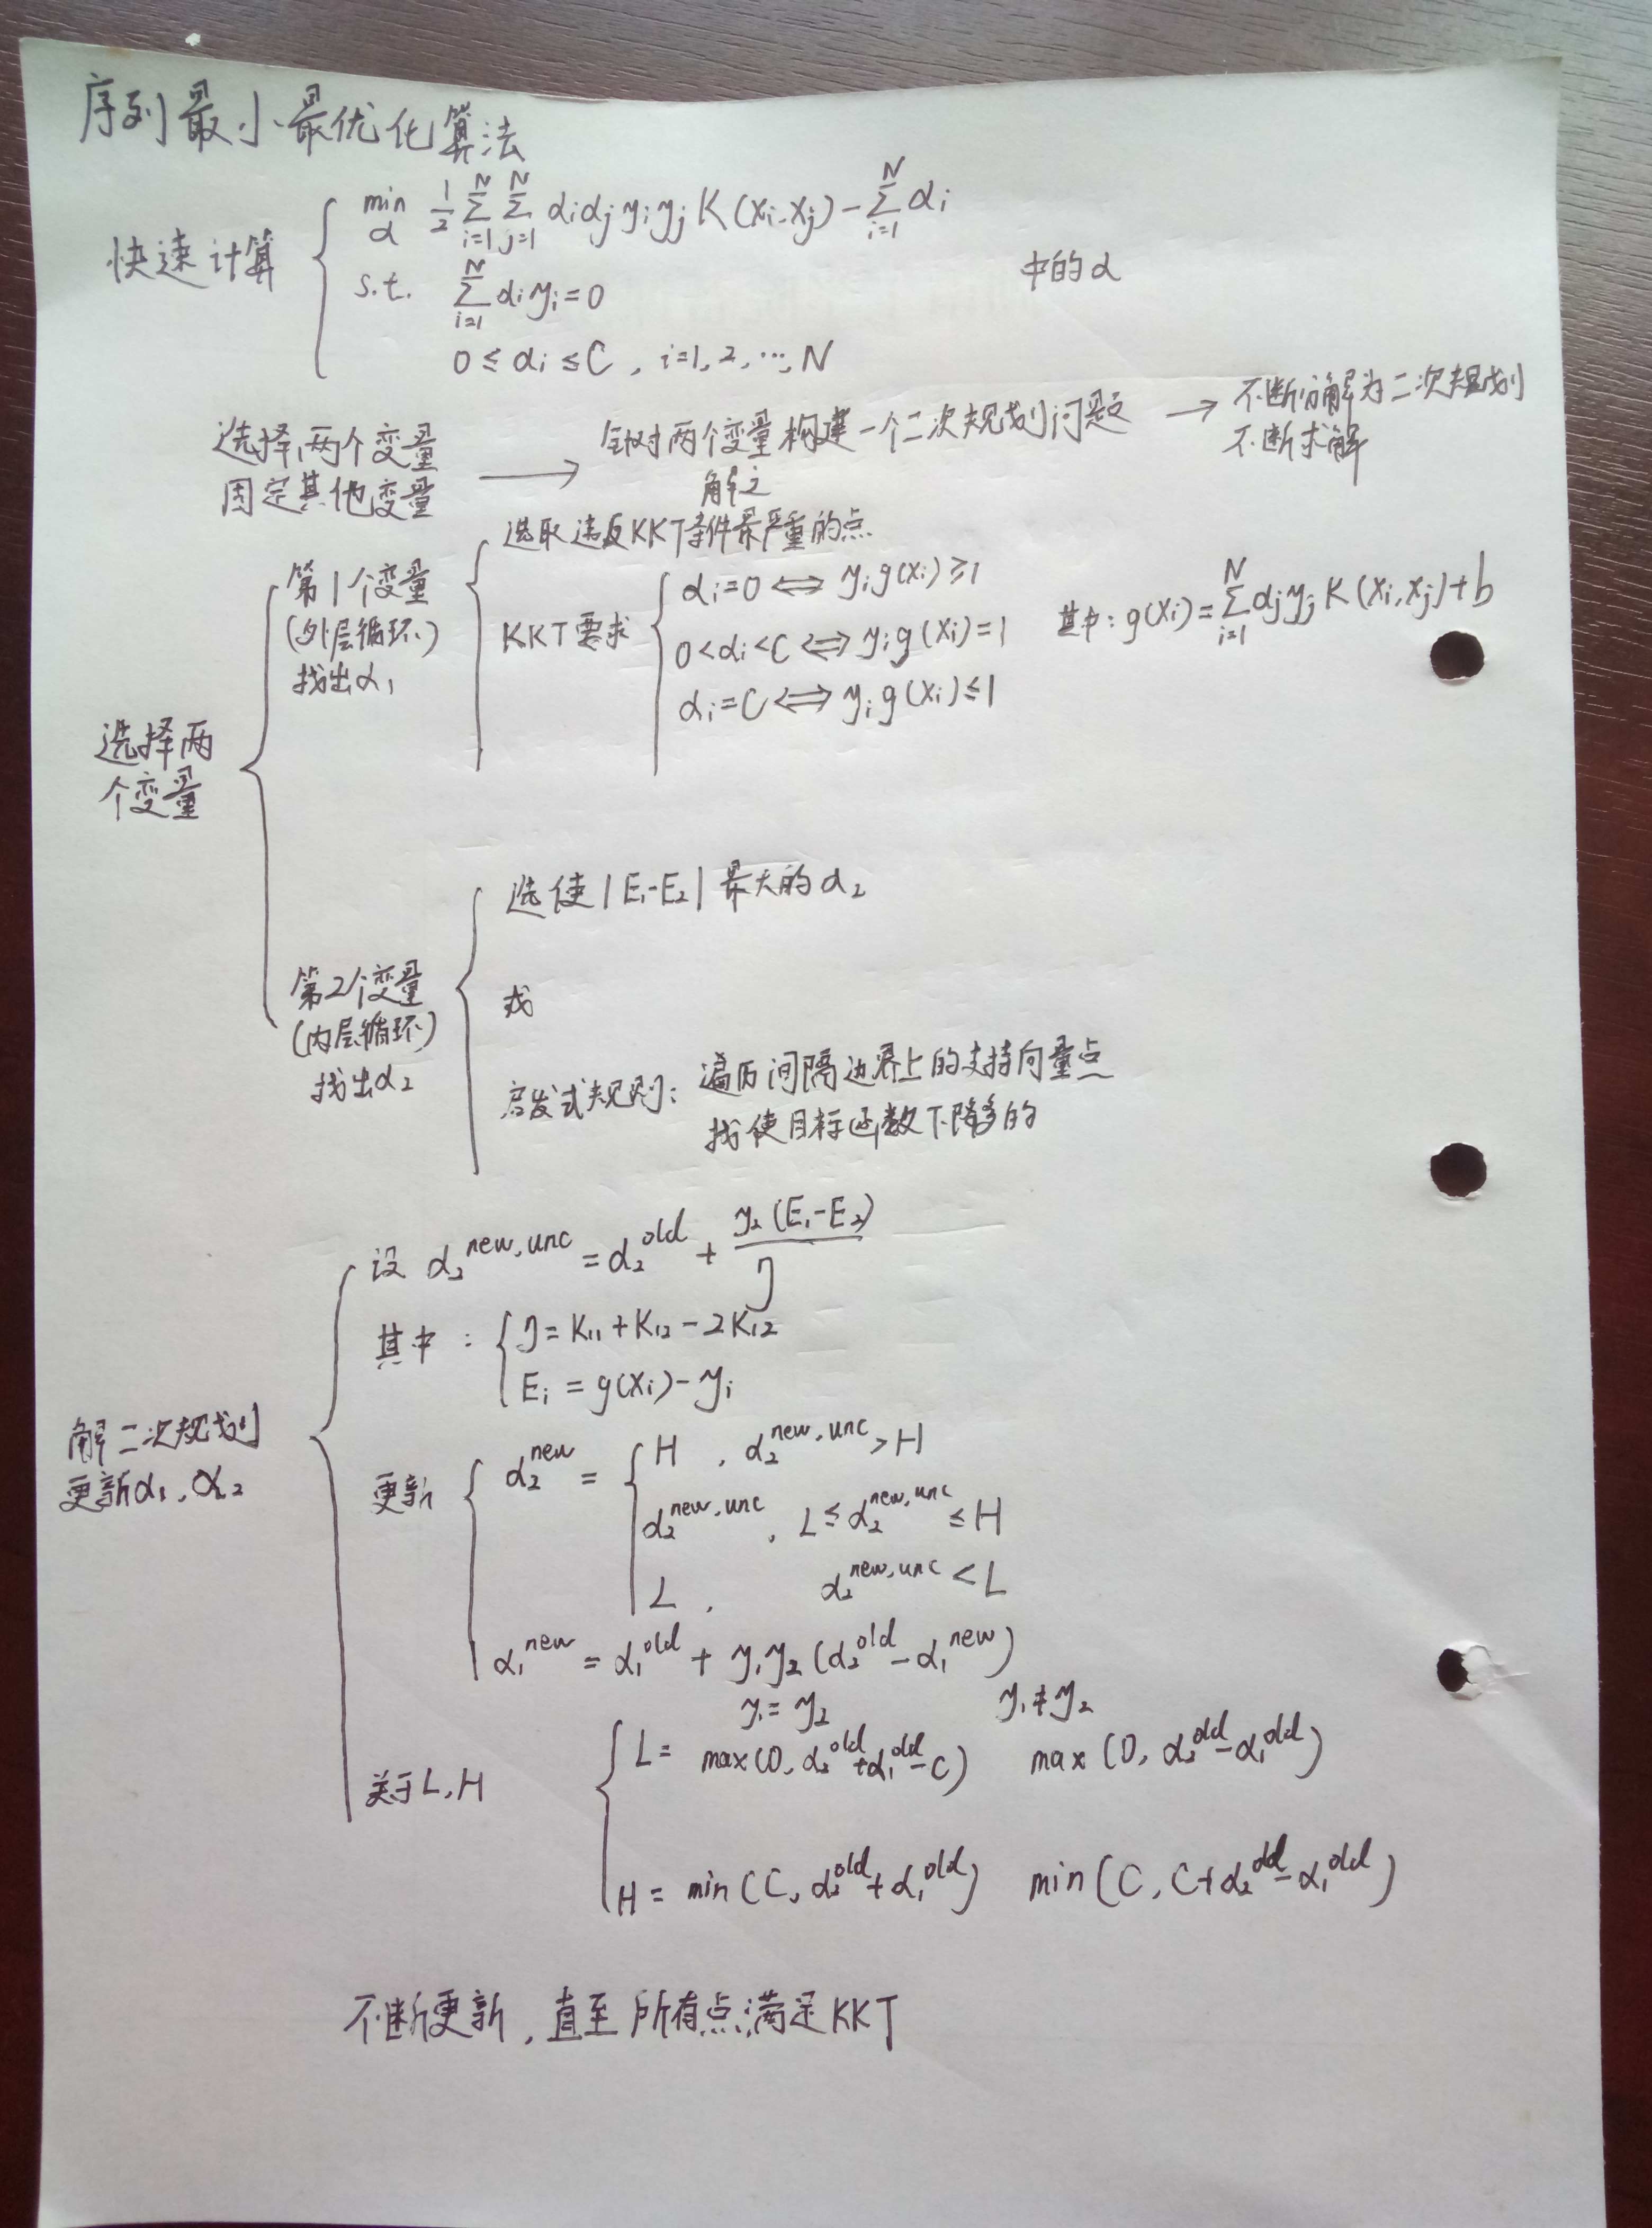 序列最小最优化算法
快速计算 { min_α 1/2 Σ_{i=1}^N Σ_{j=1}^N αiαjyiyjK(xi,xj) - Σ_{i=1}^N αi
s.t. Σ_{i=1}^N αiyi=0
中的α
0≤αi≤C, i=1,2,…,N
选择两个变量
固定其他变量
→ 针对两个变量构建一个二次规划问题
解之
→ 不断分解为二次规划
不断求解
选择两
个变量
第1个变量
(外层循环)
找出α₁
选取违反KKT条件最严重的点
KKT要求
αi=0 ⟺ yig(xi)≥1
0<αi<C ⟺ yig(xi)=1
αi=C ⟺ yig(xi)≤1
其中: g(xi)=Σ_{i=1}^N αjyjK(xi,xj)+b
第2个变量
(内层循环)
找出α₂
选使|E₁-E₂|最大的α₂
或
启发式规则: 遍历间隔边界上的支持向量点
找使目标函数下降多的
解二次规划
更新α₁,α₂
设 α₂^{new,unc} = α₂^{old} + y₂(E₁-E₂)/η
其中: { η=K₁₁+K₁₂-2K₁₂
Ei = g(xi)-yi
更新 { α₂^{new} = { H , α₂^{new,unc}>H
α₂^{new,unc} , L≤α₂^{new,unc}≤H
L , α₂^{new,unc}<L
α₁^{new} = α₁^{old} + y₁y₂(α₂^{old}-α₁^{new})
y₁=y₂ y₁≠y₂
关于L,H
L= max(0, α₂^{old}+α₁^{old}-C) max(0, α₂^{old}-α₁^{old})
H= min(C, α₂^{old}+α₁^{old}) min(C, C+α₂^{old}-α₁^{old})
不断更新,直至所有点满足KKT